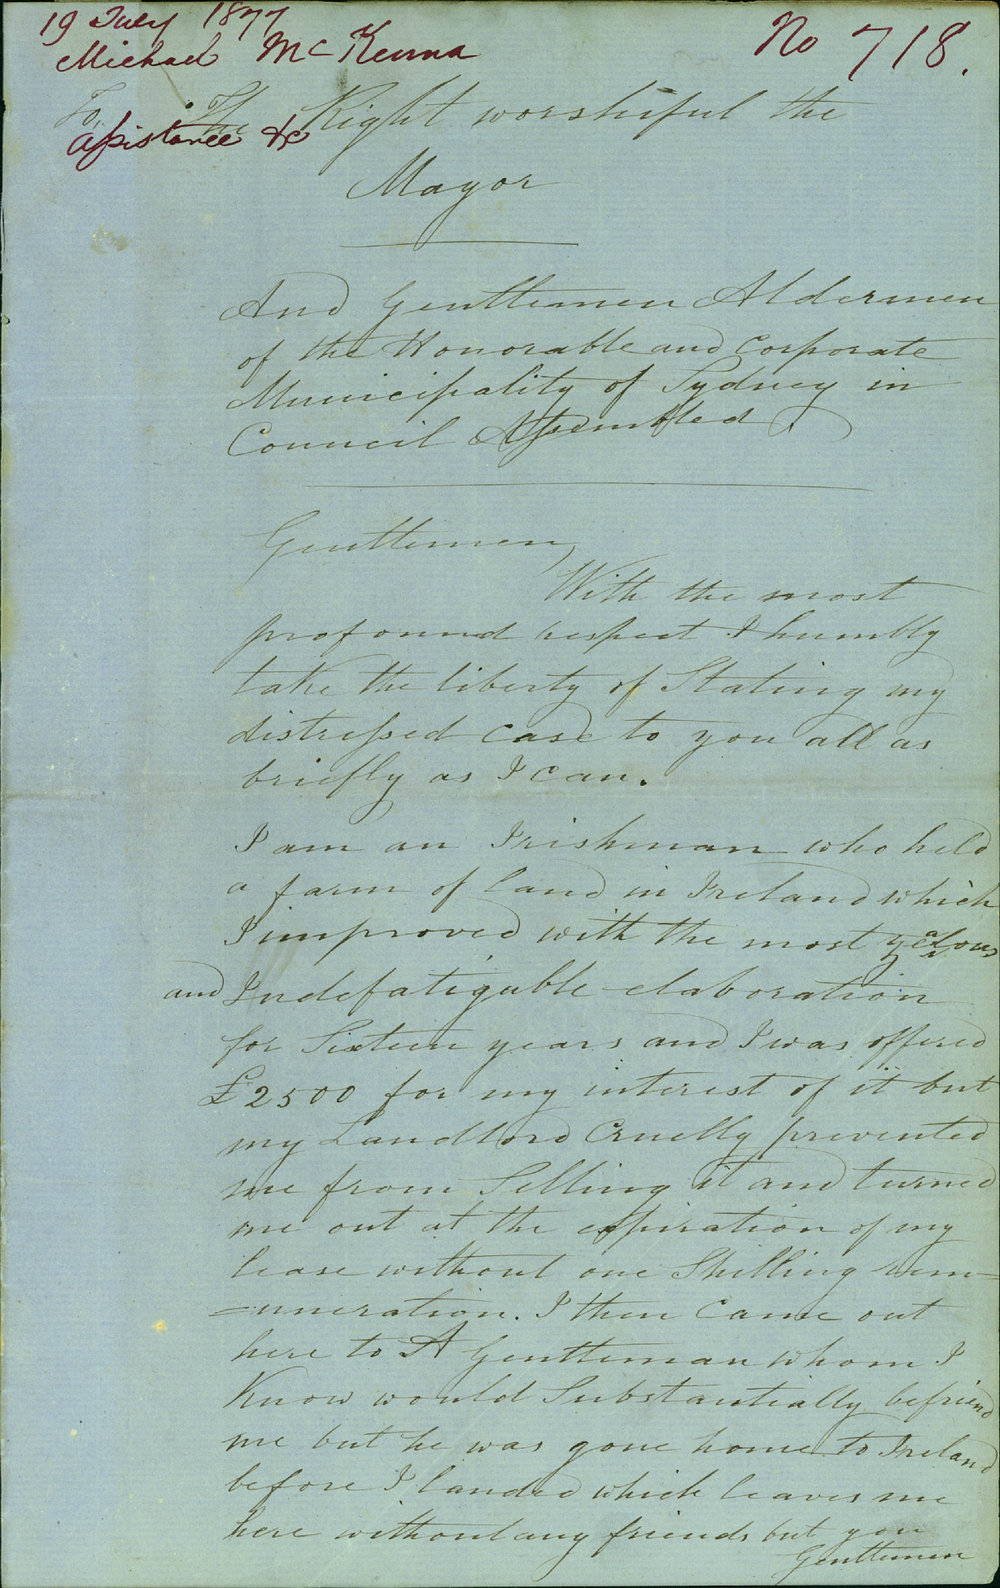 19 July 1877
Michael McKenna
No 718.
assistance &c
To, The Right worshipful the
Mayor
And Gentlemen Aldermen
of the Honorable and Corporate
Municipality of Sydney in
Council Assembled.
Gentlemen,
With the most
profound respect I humbly
take the liberty of Stating my
distressed case to you all as
briefly as I can.
I am an Irishman who held
a farm of land in Ireland which
I improved with the most zealous
and Indefatigable elaboration
for Sixteen years and I was offered
£2500 for my interest of it but
my Landlord Cruelly prevented
me from Selling it and turned
me out at the expiration of my
lease without one Shilling rem=
=uneration. I then Came out
here to A Gentleman whom I
Know would Substantially befriend
me but he was gone home to Ireland
before I landed which leaves me
here without any friends but you
Gentlemen